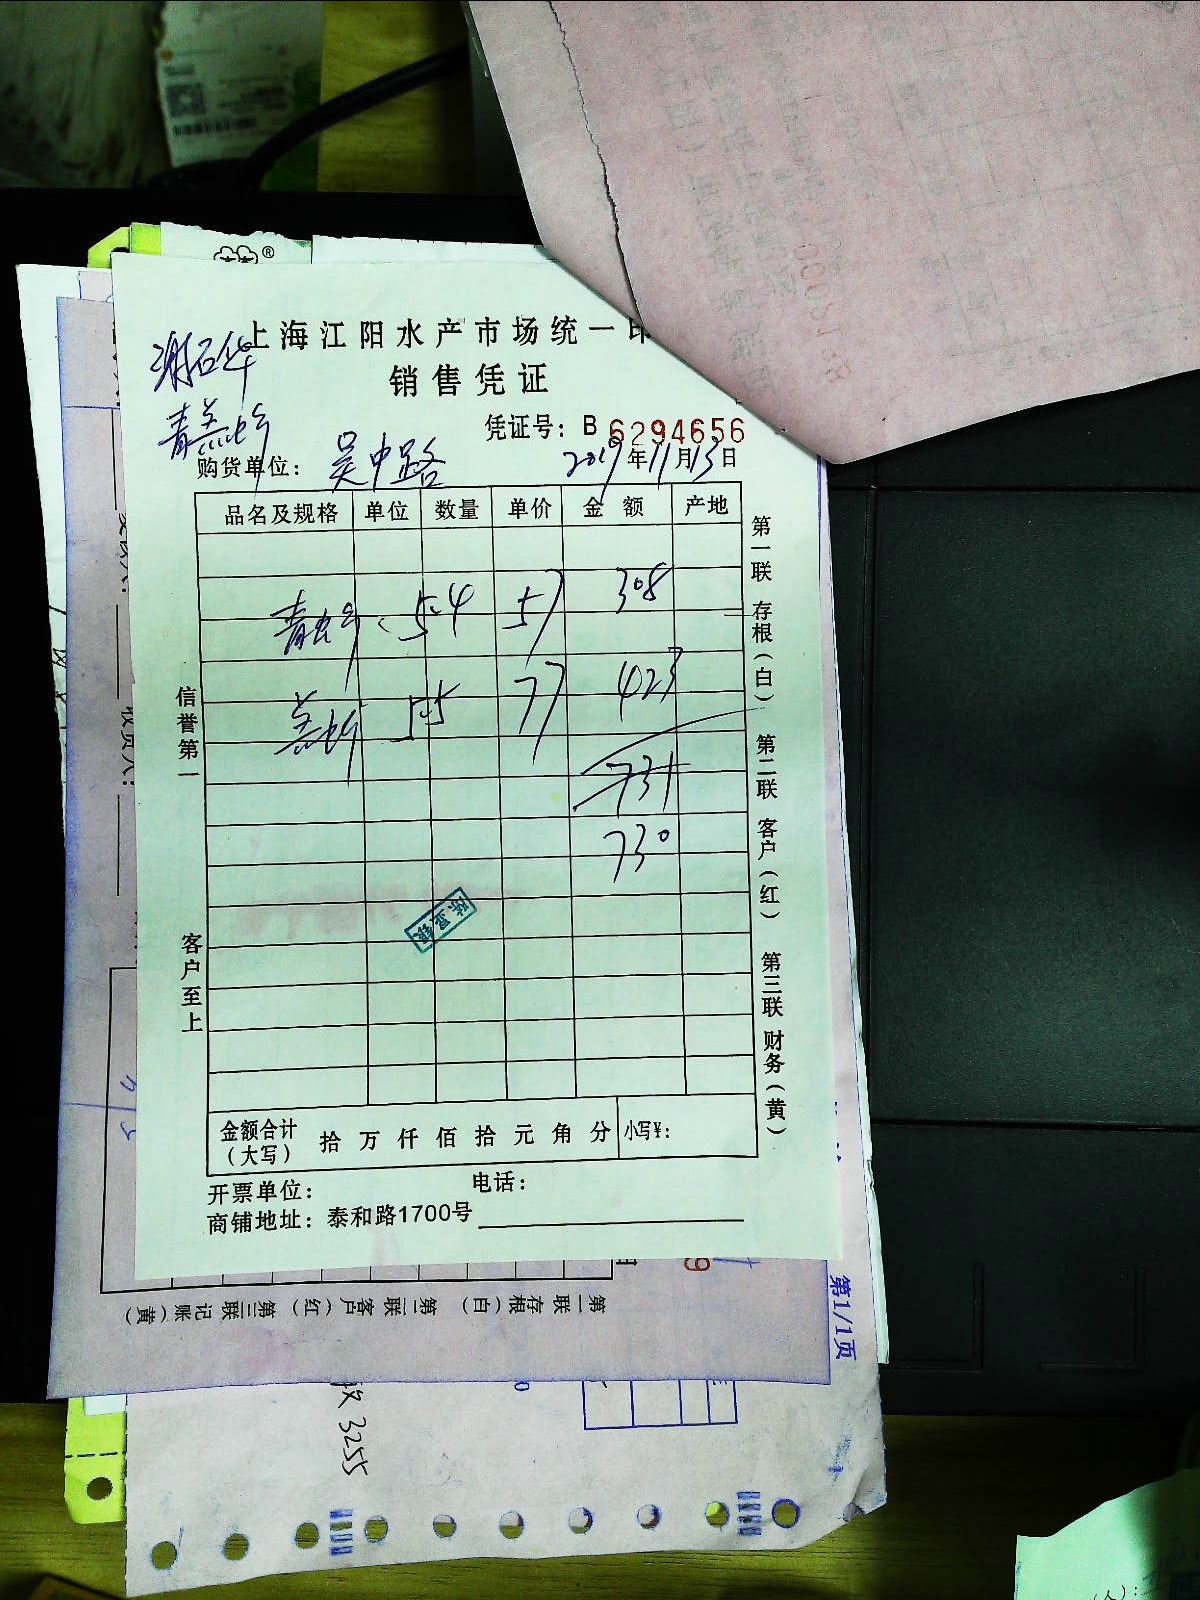 上海江阳水产市场统一印
销售凭证
谢石华
青羔虾
凭证号：B 6294656
购货单位：吴中路 2019年11月13日
品名及规格 单位 数量 单价 金额 产地
青虾 5.4 57 308
羔虾 5.5 77 423
731
730
信誉第一
客户至上
第一联 存根（白） 第二联 客户（红） 第三联 财务（黄）
金额合计（大写） 拾 万 仟 佰 拾 元 角 分 小写¥：
开票单位： 电话：
商铺地址：泰和路1700号
收货人：
第一联 存根（白） 第二联 客户（红） 第三联 记账（黄）
第1/1页
3255